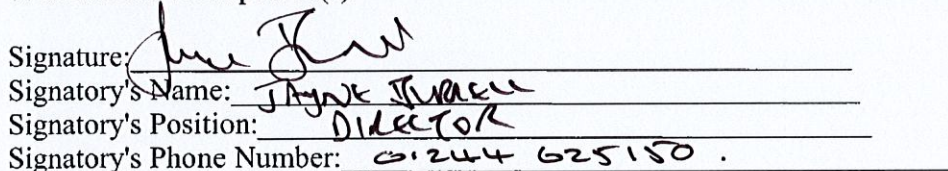 Signature:
Signatory's Name: JAYNE
Signatory's Position: DIRECTOR
Signatory's Phone Number: 01244 625150.